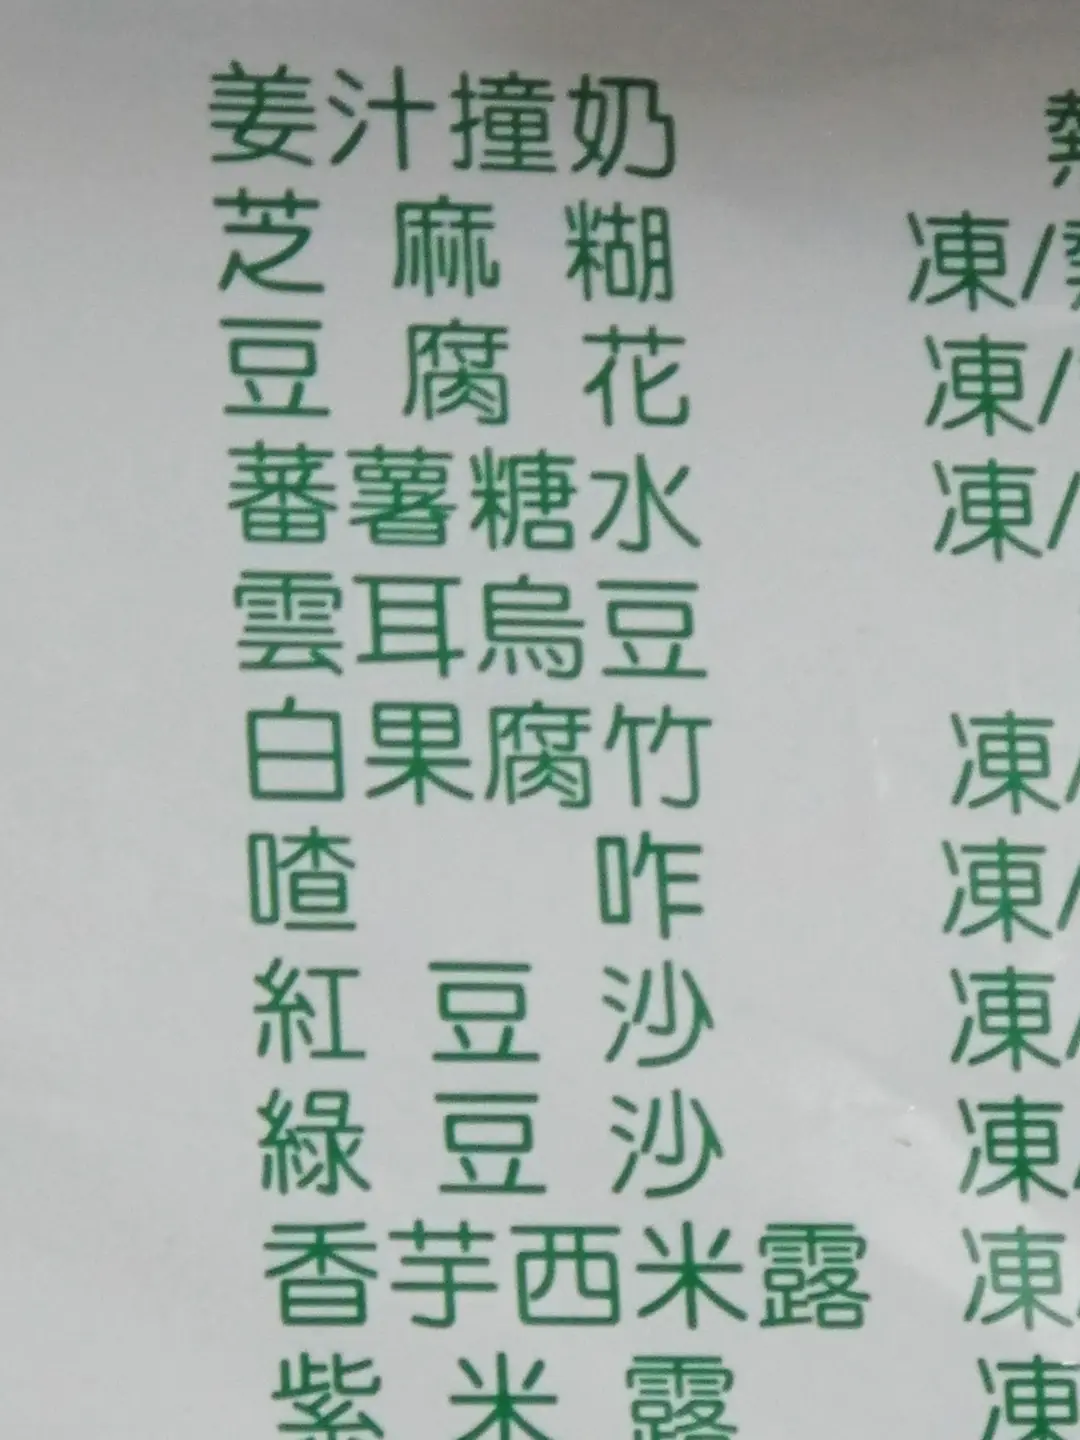 姜汁撞奶
芝麻糊 凍/
豆腐花 凍/
蕃薯糖水 凍/
雲耳烏豆
白果腐竹 凍/
喳咋 凍/
紅豆沙 凍/
綠豆沙 凍/
香芋西米露 凍/
紫米露 凍